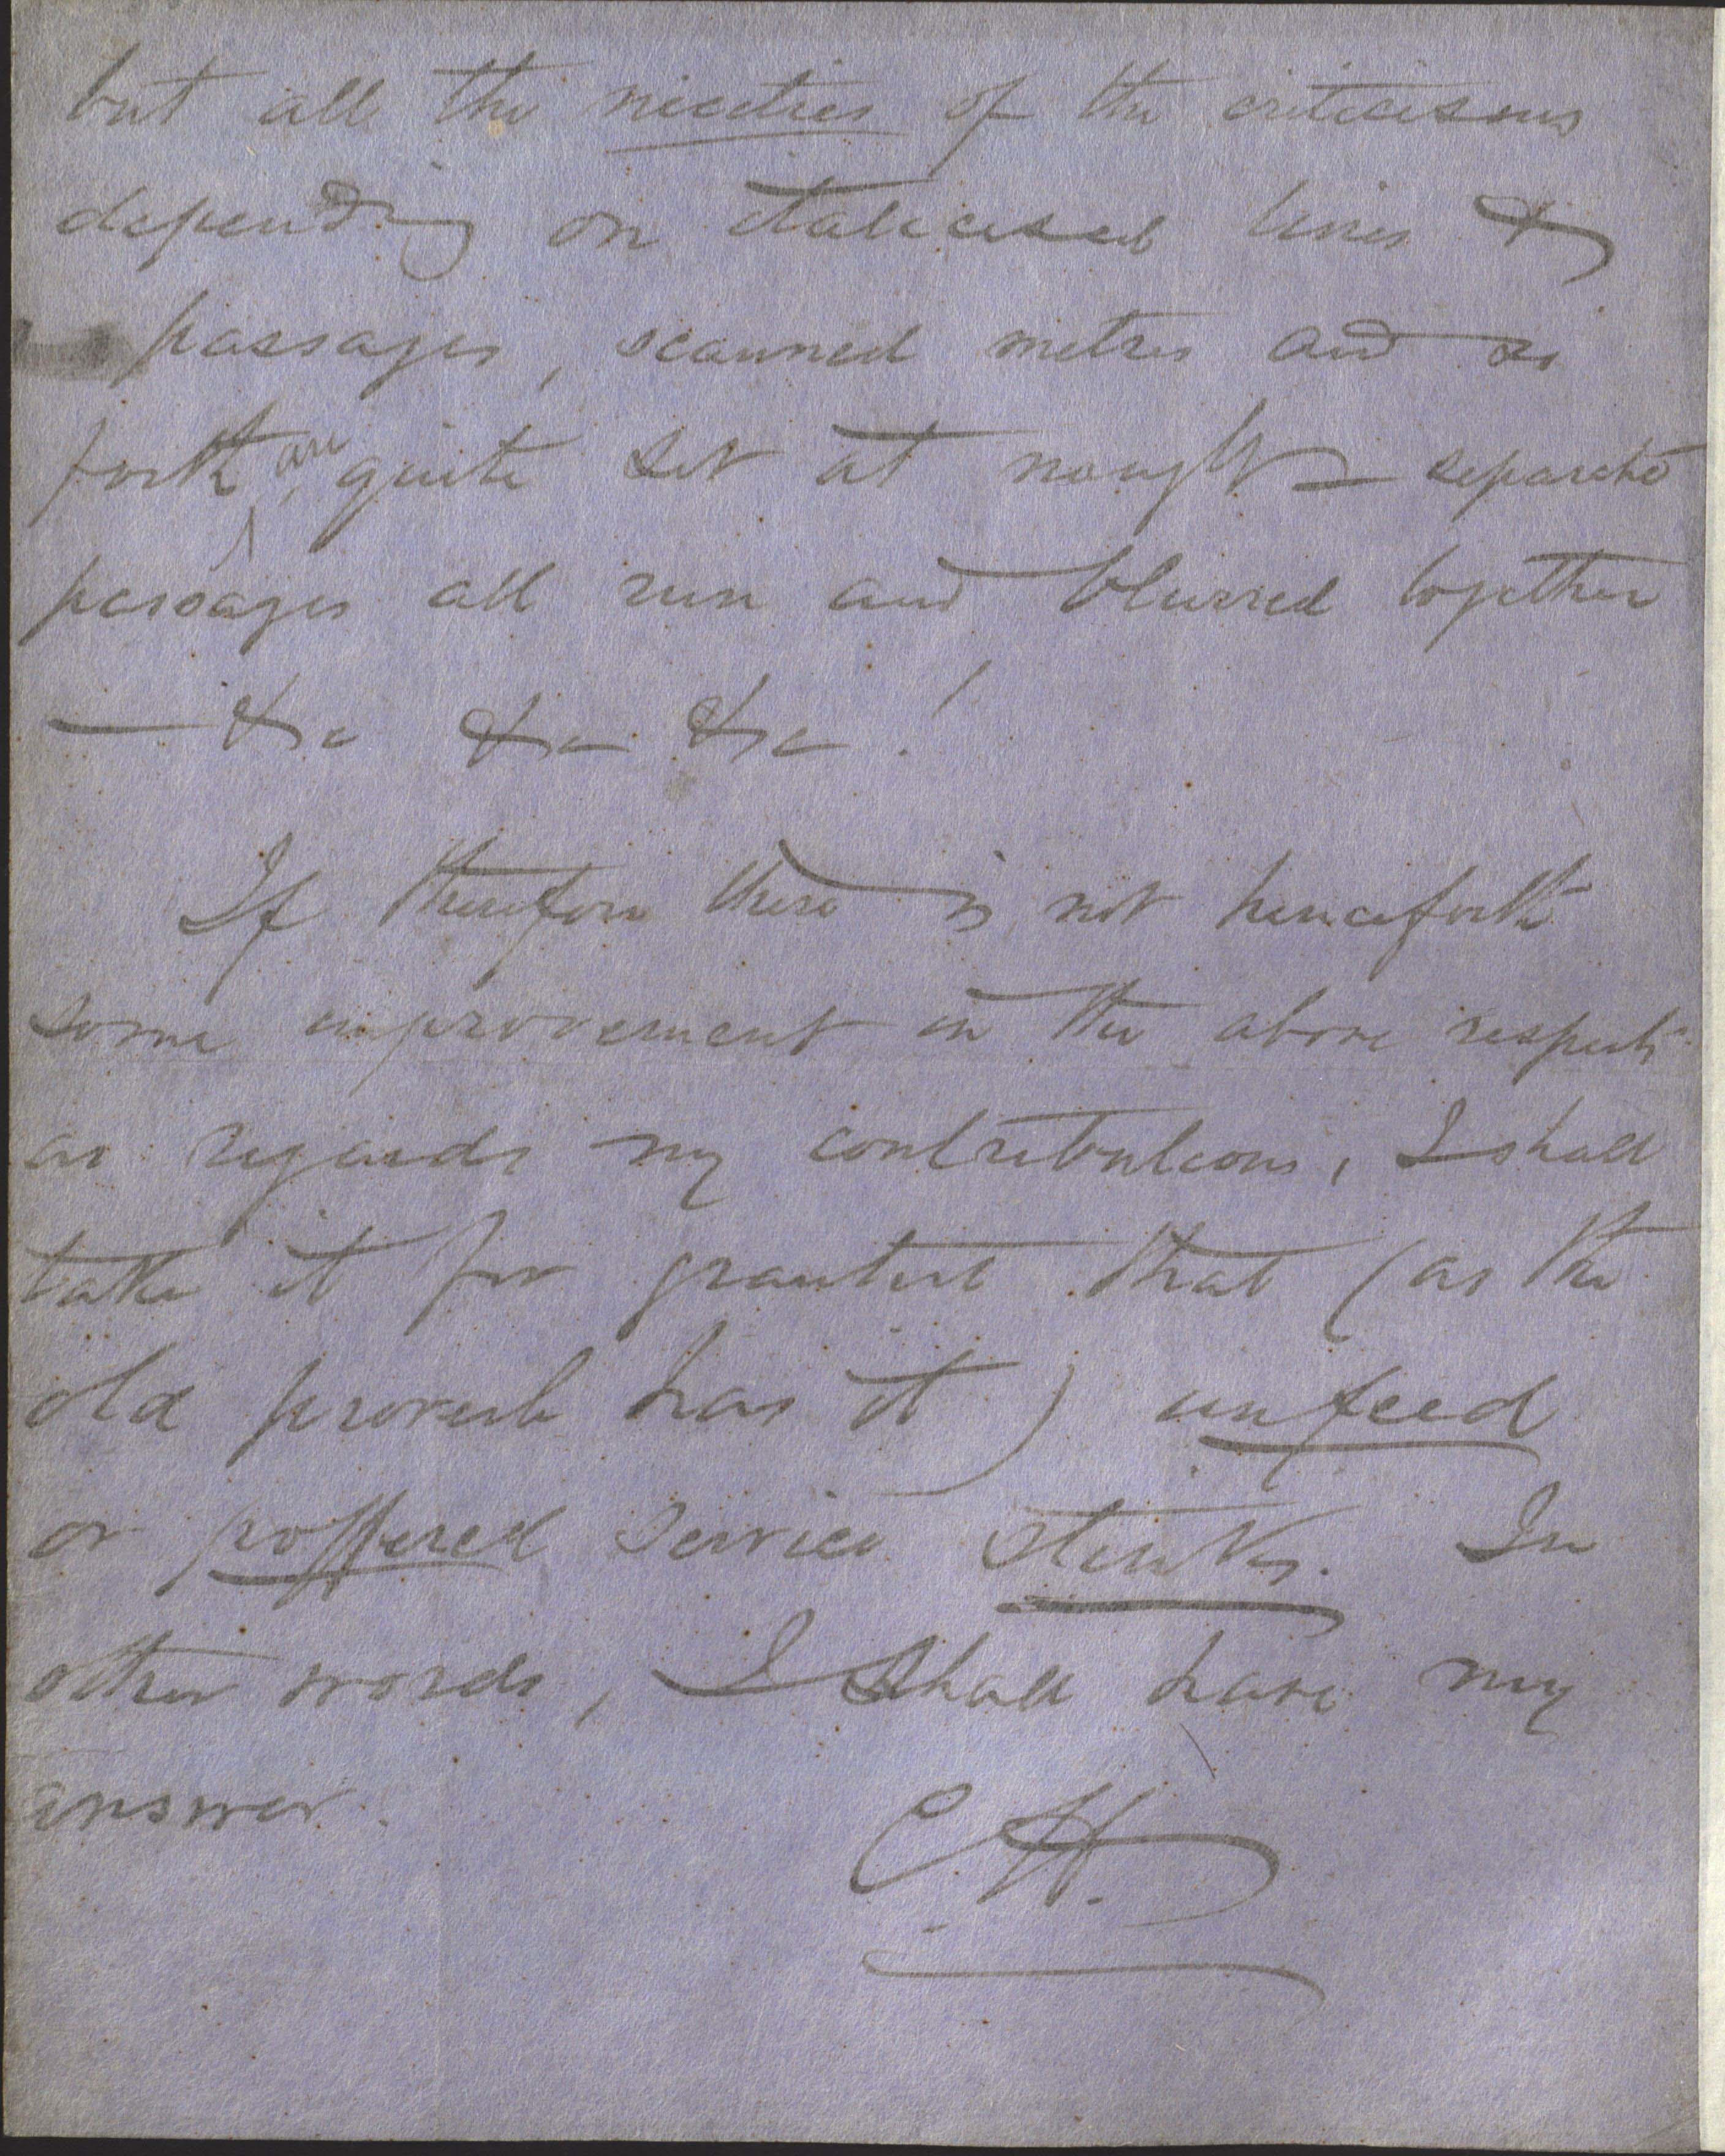 but all the niceties of the criticisms
depending on italicised lines &
passages, scanned metres and so
forth are quite set at nought — separate
passages all run and blurred together
— &c &c &c!
If therefore there is not henceforth
some improvement in the above respects
as regards my contributions, I shall
take it for granted that (as the
old proverb has it) unfeed
or poffered service stinks. In
other words, I shall have my
answer.
C.H.